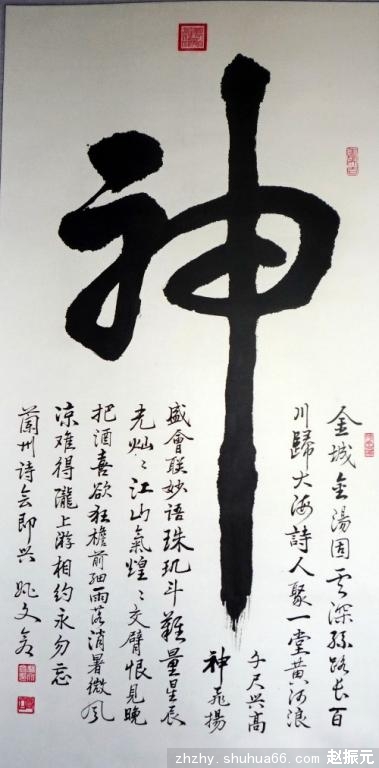 神
金城金湯固云深絲路长百
川歸大海詩人聚一堂黄河浪
千尺兴高
神飛揚
盛會联妙语珠玑斗難量星辰
光灿々江山氣煌々交臂恨見晚
把酒喜欲狂檐前细雨落消暑微风
凉难得隴上游相约永勿忘
蘭州诗会即兴 姚文仓
zhzhy.shuhua66.com 赵振元